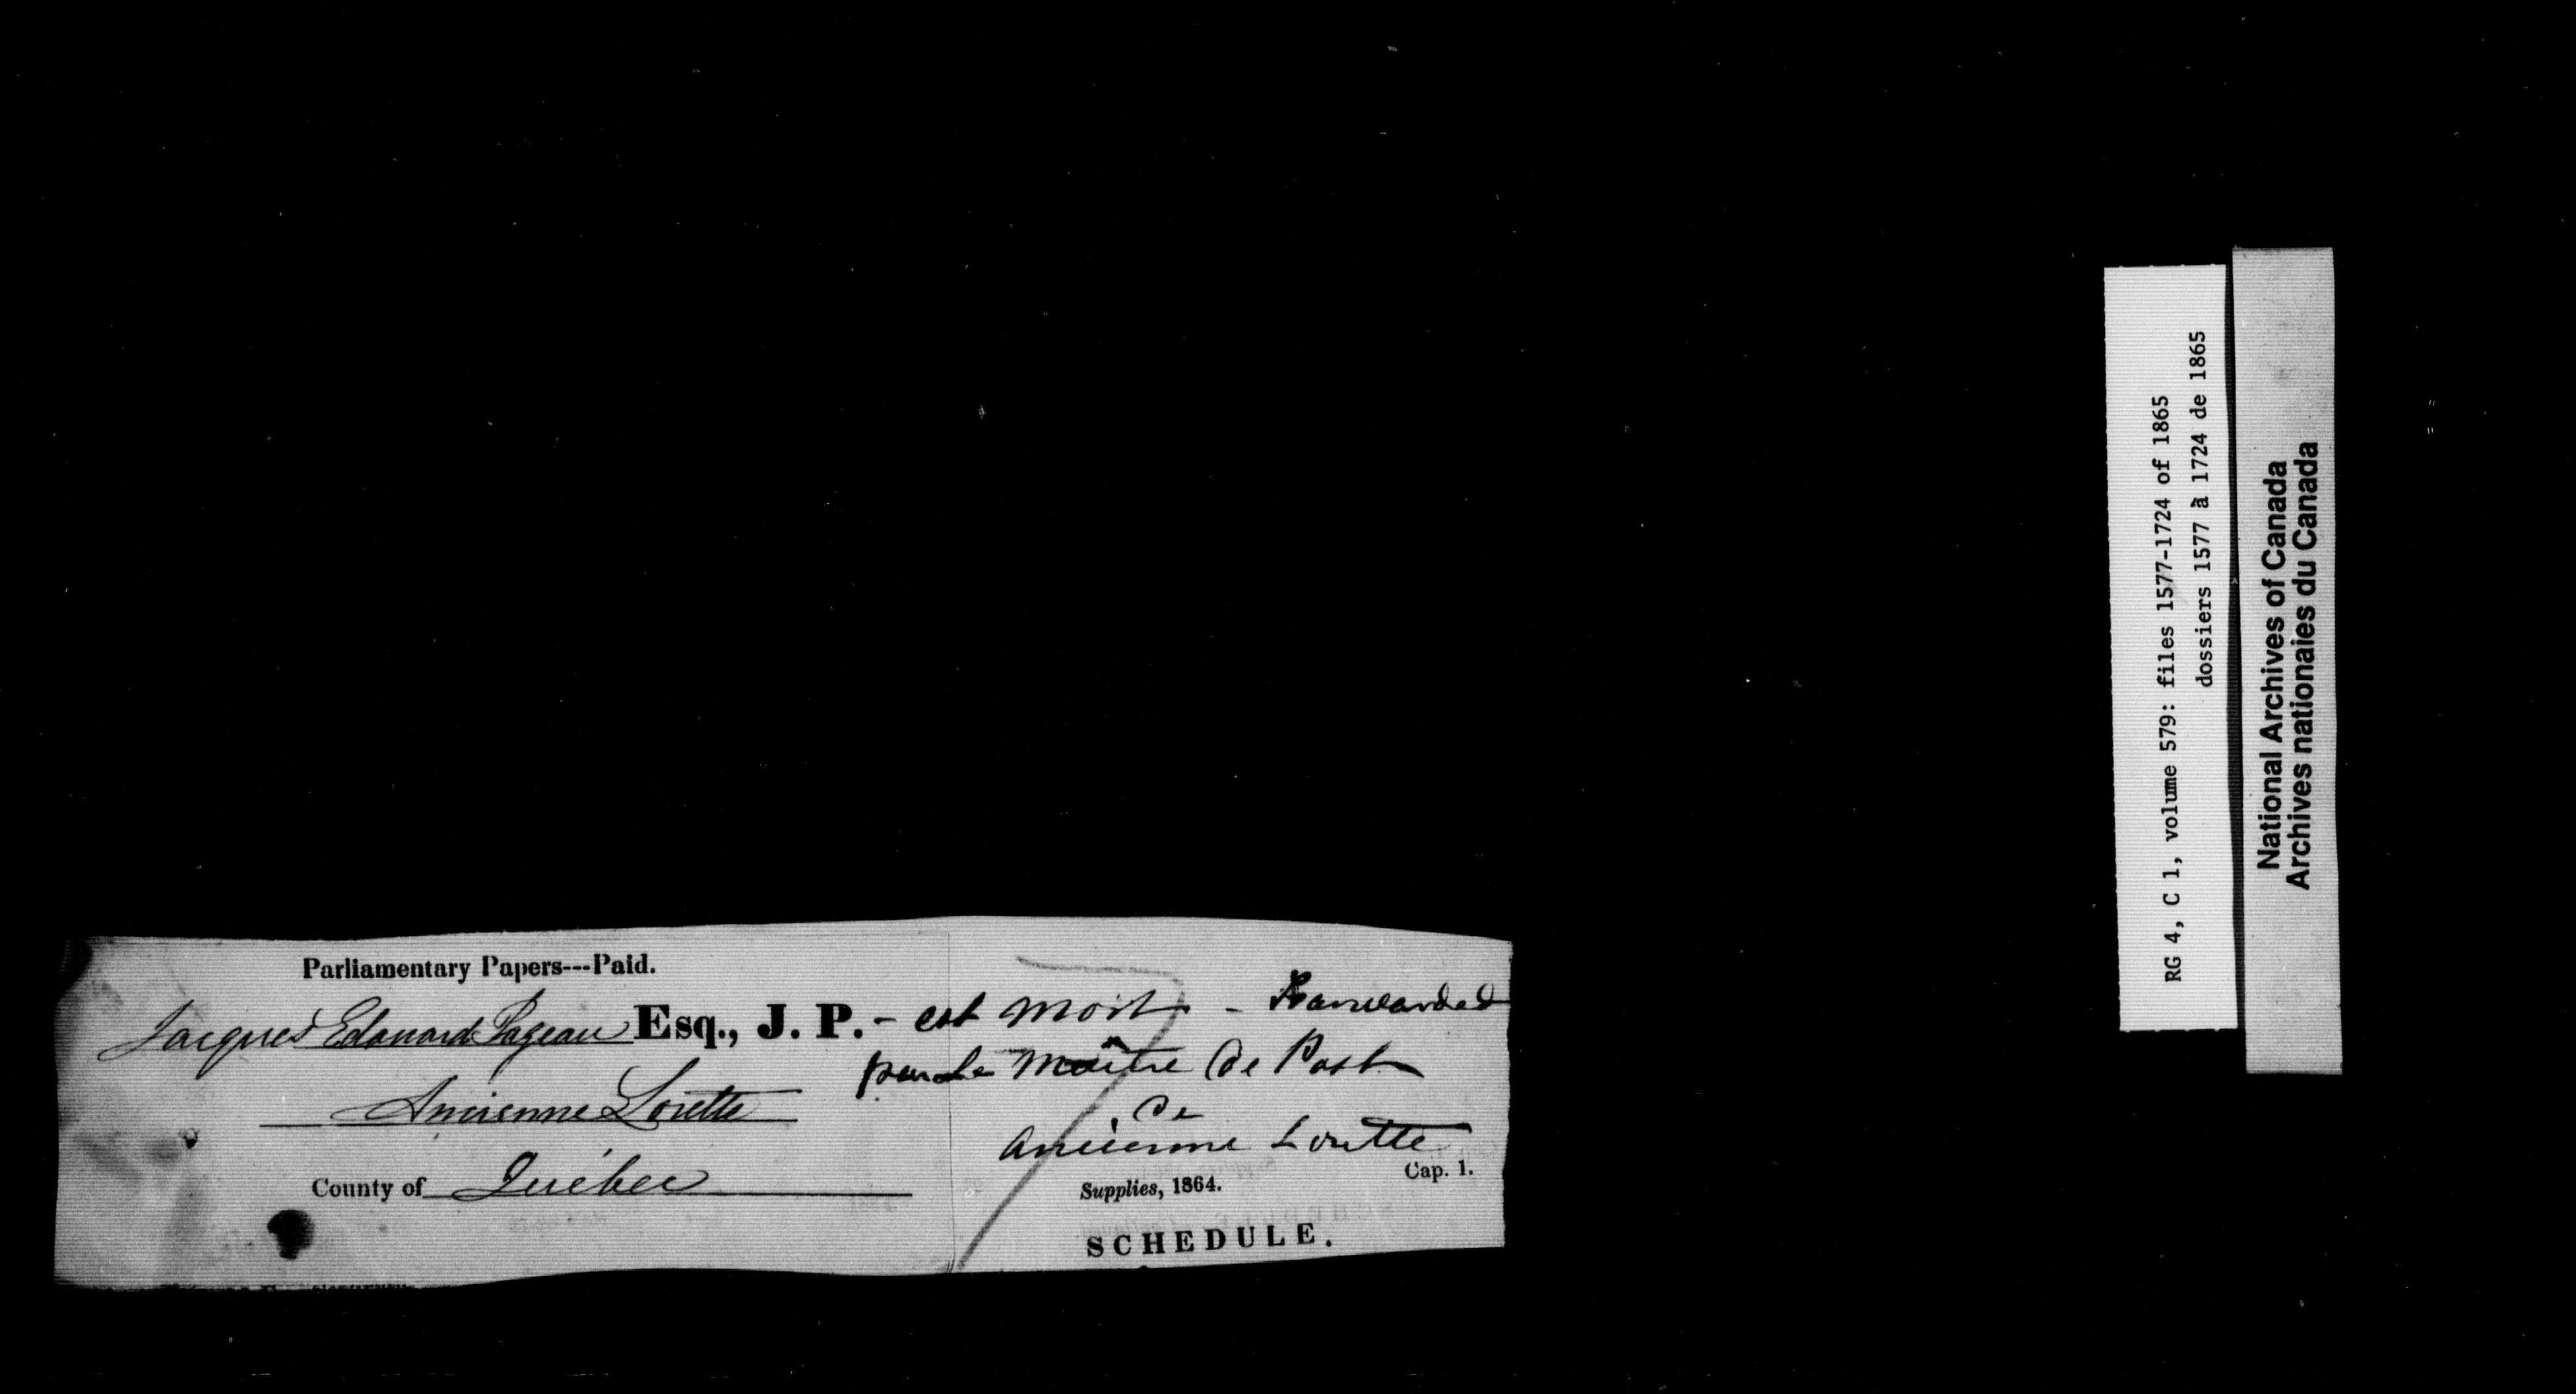 Parliamentary Papers---Paid.
Jacques Edouard Pageau Esq., J. P. - est mort - Forwarded
par le Maître de Post
de
Ancienne Lorette
Ancienne Lorette
County of Québec
Supplies, 1864.
Cap. 1.
SCHEDULE.
RG 4, C 1, volume 579: files 1577-1724 of 1865
dossiers 1577 à 1724 de 1865
National Archives of Canada
Archives nationales du Canada